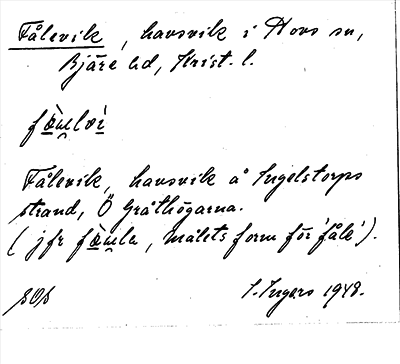 Fålevik, havsvik i Hovs sn,
Bjäre hd, Krist. l.
Fålevik, havsvik å Ingelstorps
strand, Ö Gråthögarna.
(jfr, målets form för 'fåle').
SOS I. Ingers 1948.